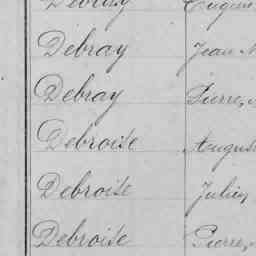 Debray Jean
Debray Pierre,
Debroise
Debroise Julien
Debroise Pierre,